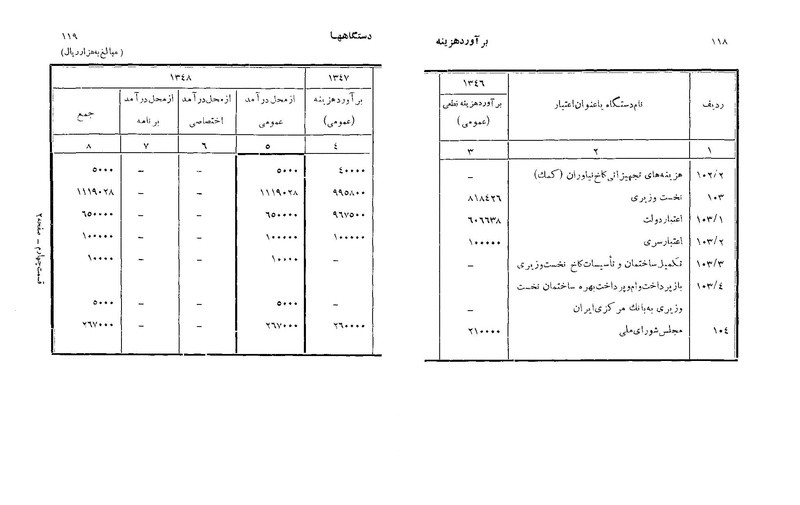 ۱۱۸
برآورد هزینه
ردیف
نام دستگاه یا عنوان اعتبار
۱۳٤٦
برآورد هزینه قطعی
(عمومی)
۱ ۲ ۳
۱۰۲/۲ هزینه‌های تجهیزاتی کاخ نیاوران (کمك) –
۱۰۳ نخست وزیری ۸۱۸٤۲٦
۱۰۳/۱ اعتبار دولت ٦۰٦٦۳۸
۱۰۳/۲ اعتبار سری ۱۰۰۰۰۰
۱۰۳/۳ تکمیل ساختمان و تأسیسات کاخ نخست وزیری –
۱۰۳/٤ بازپرداخت وام و پرداخت بهره ساختمان نخست
وزیری به بانك مرکزی ایران –
۱۰٤ مجلس شورای ملی ۲۱۰۰۰۰
دستگاهها
۱۱۹
(مبالغ به هزار ریال)
۱۳٤۷
۱۳٤۸
برآورد هزینه
(عمومی)
از محل درآمد
عمومی
از محل درآمد
اختصاصی
از محل درآمد
برنامه
جمع
٤ ۵ ٦ ۷ ۸
٤۰۰۰۰ ۵۰۰۰ – – ۵۰۰۰
۹۹۵۸۰۰ ۱۱۱۹۰۲۸ – – ۱۱۱۹۰۲۸
۹٦۷۵۰۰ ٦۵۰۰۰۰ – – ٦۵۰۰۰۰
۱۰۰۰۰۰ ۱۰۰۰۰۰ – – ۱۰۰۰۰۰
– ۱۰۰۰۰ – – ۱۰۰۰۰
– ۵۰۰۰ – – ۵۰۰۰
۲٦۰۰۰۰ ۲٦۷۰۰۰ – – ۲٦۷۰۰۰
قسمت چهارم – صفحه ۲